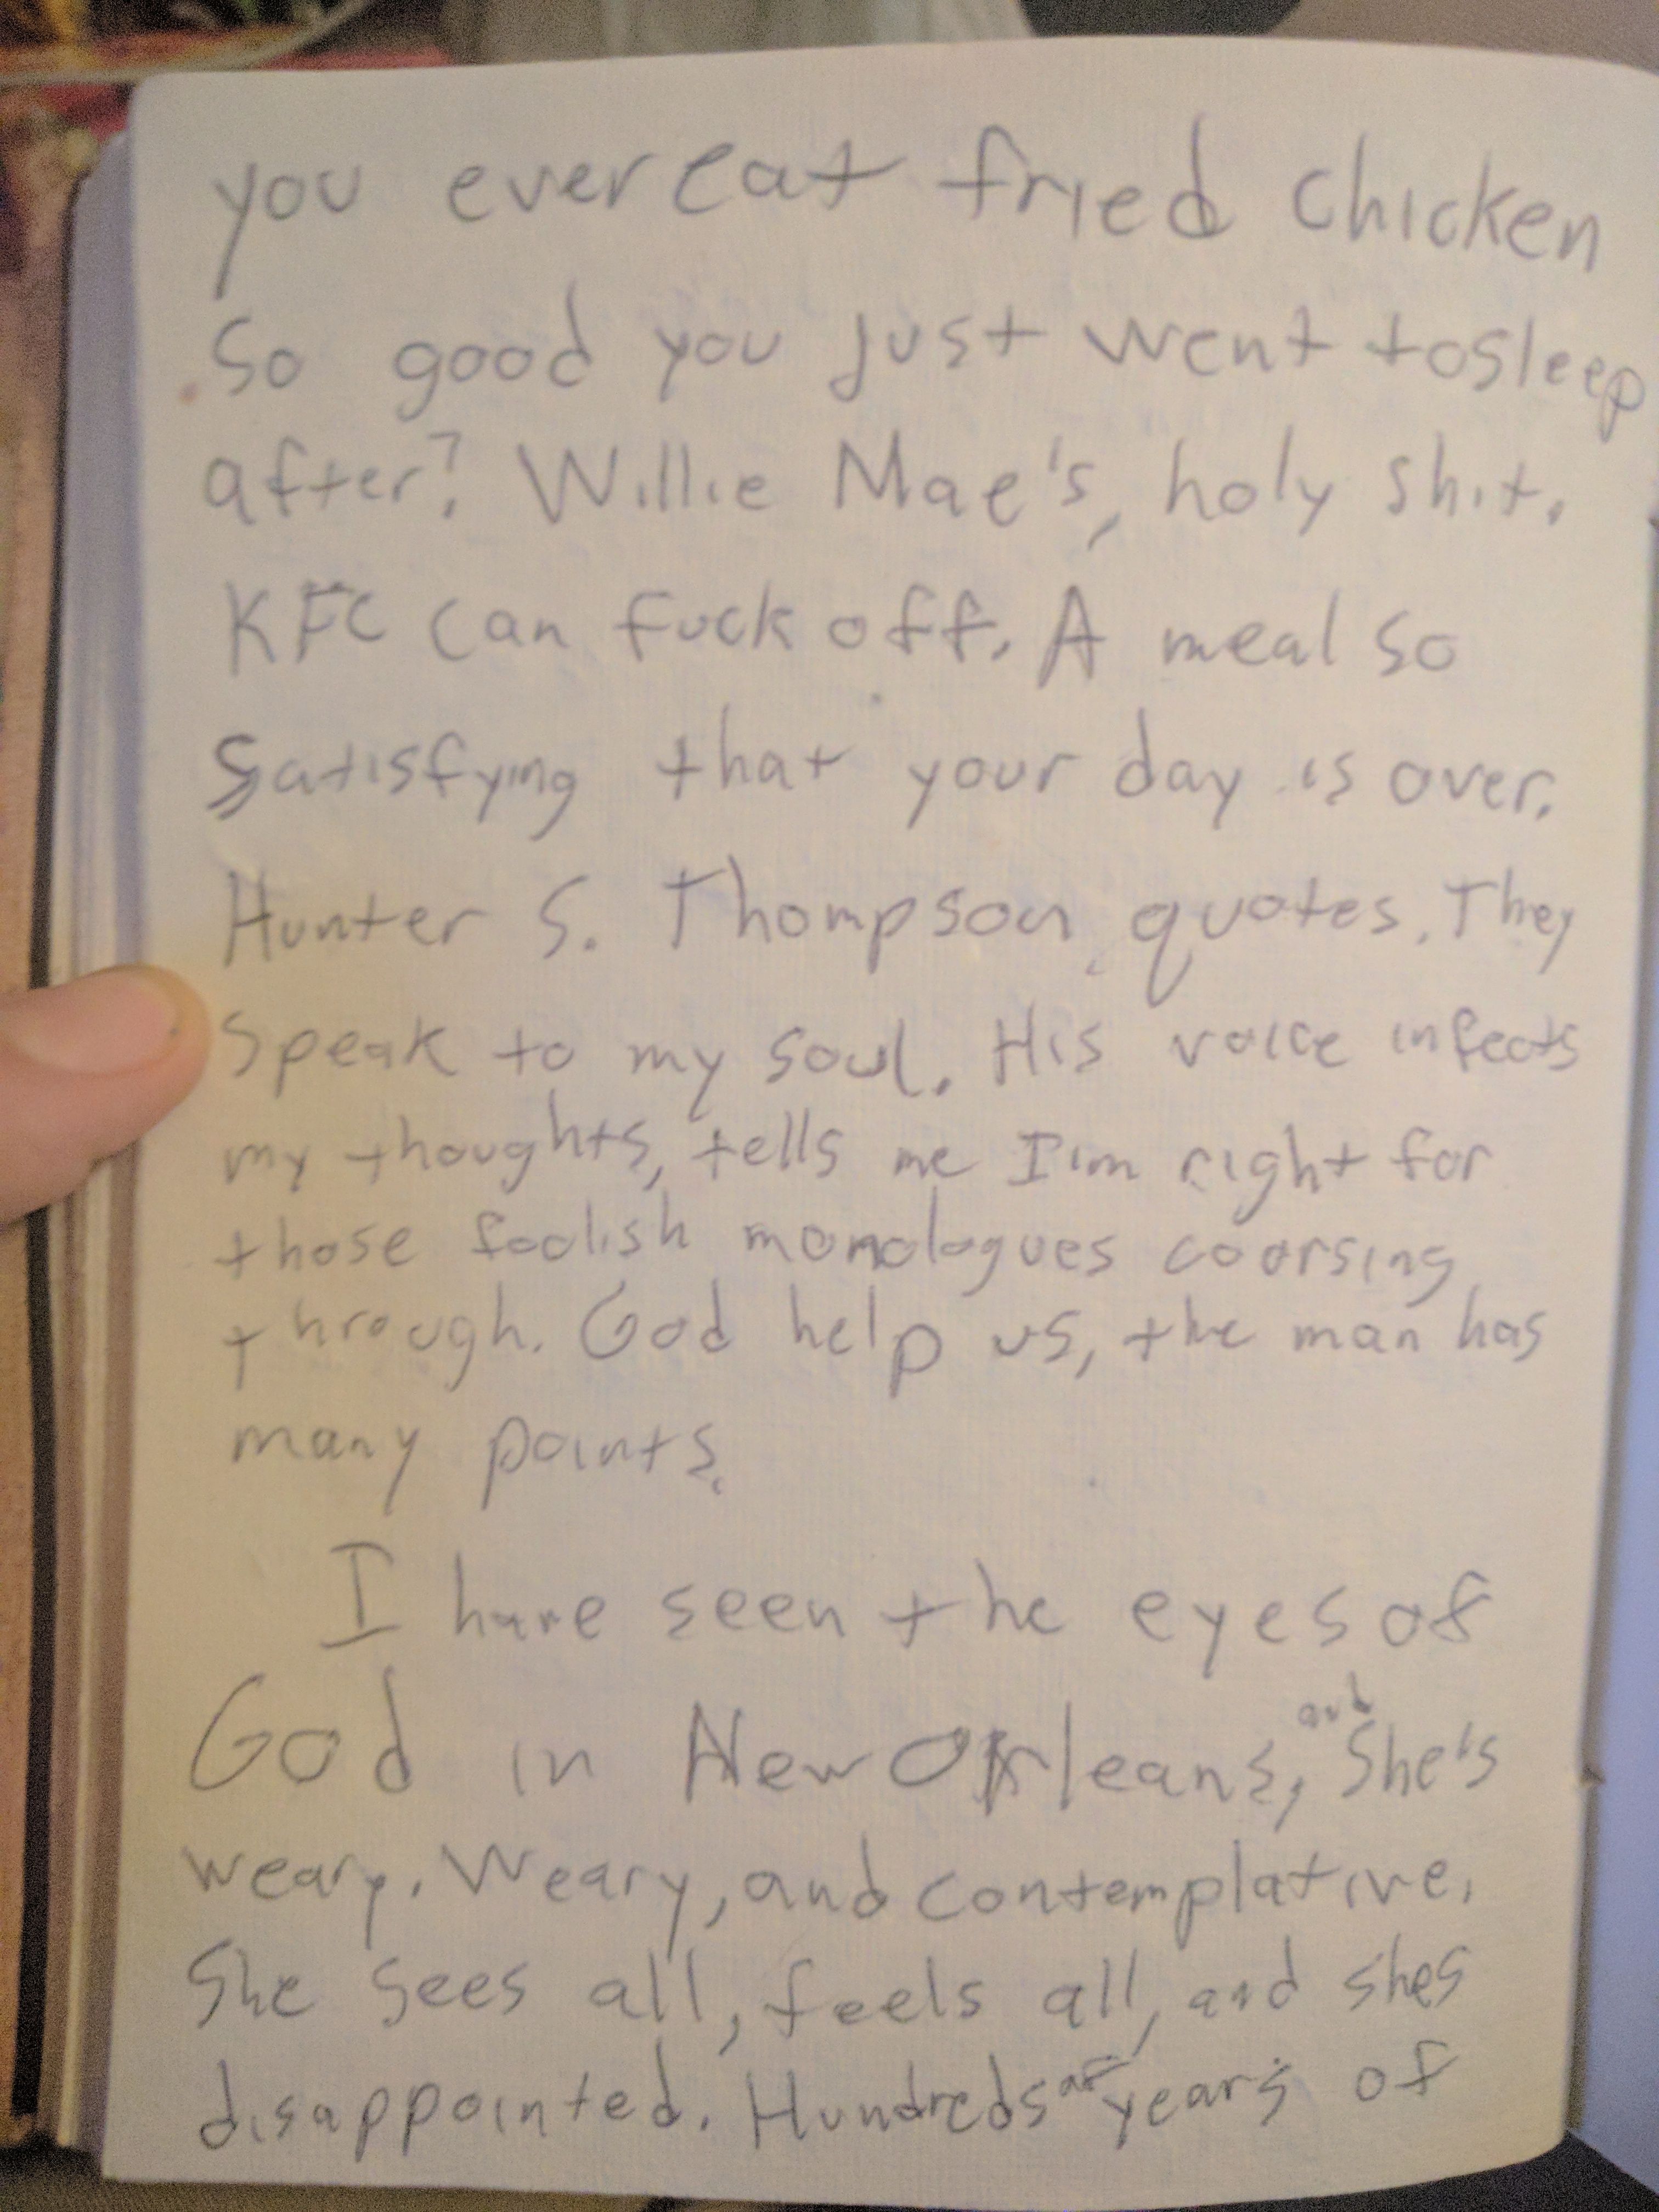 you ever eat fried chicken
so good you just went to sleep
after? Willie Mae's, holy shit.
KFC can fuck off. A meal so
satisfying that your day is over.
Hunter S. Thompson quotes. They
speak to my soul. His voice infects
my thoughts, tells me I'm right for
those foolish monologues coorsing
through. God help us, the man has
many points.
I have seen the eyes of
God in New Orleans, and She's
weary. Weary, and contemplative.
She sees all, feels all, and shes
disappointed. Hundreds of years of